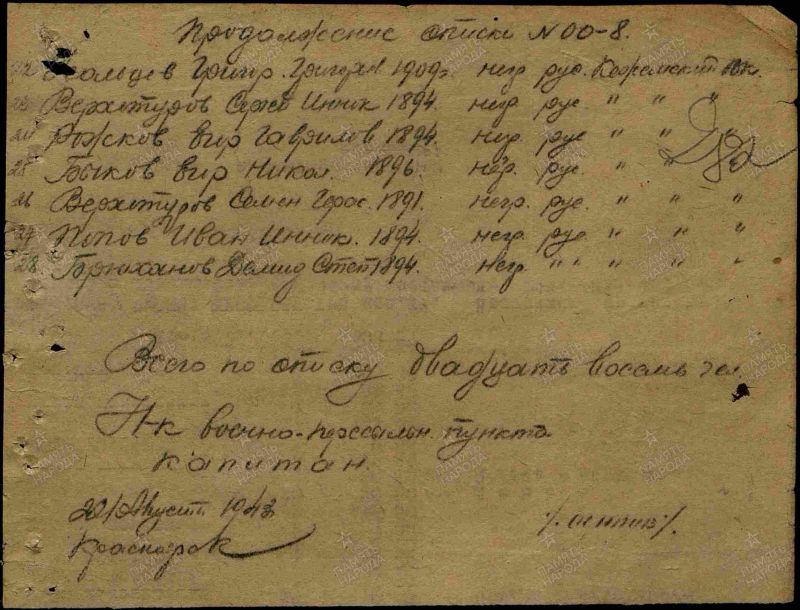 Продолжение списка N 00-8.
22 Григор. Григорьев 1909г негр рус.
23 Верхотуров Сергей Иннок 1894. негр. рус " " "
24 Рожков Вир Гаврилов 1894. негр. рус " "
25 Быков Вир Никол. 1896. негр. рус " "
26 Верхотуров Семен Герас. 1891. негр. рус. " " "
27 Попов Иван Иннок. 1894. негр. рус " " "
28 Демид Степ 1894. негр. " " " " "
Всего по списку двадцать восемь чел.
Н-к военно-пересыльн. пункта
капитан.
20/Августа 1943
Красноярск
ПАМЯТЬ НАРОДА